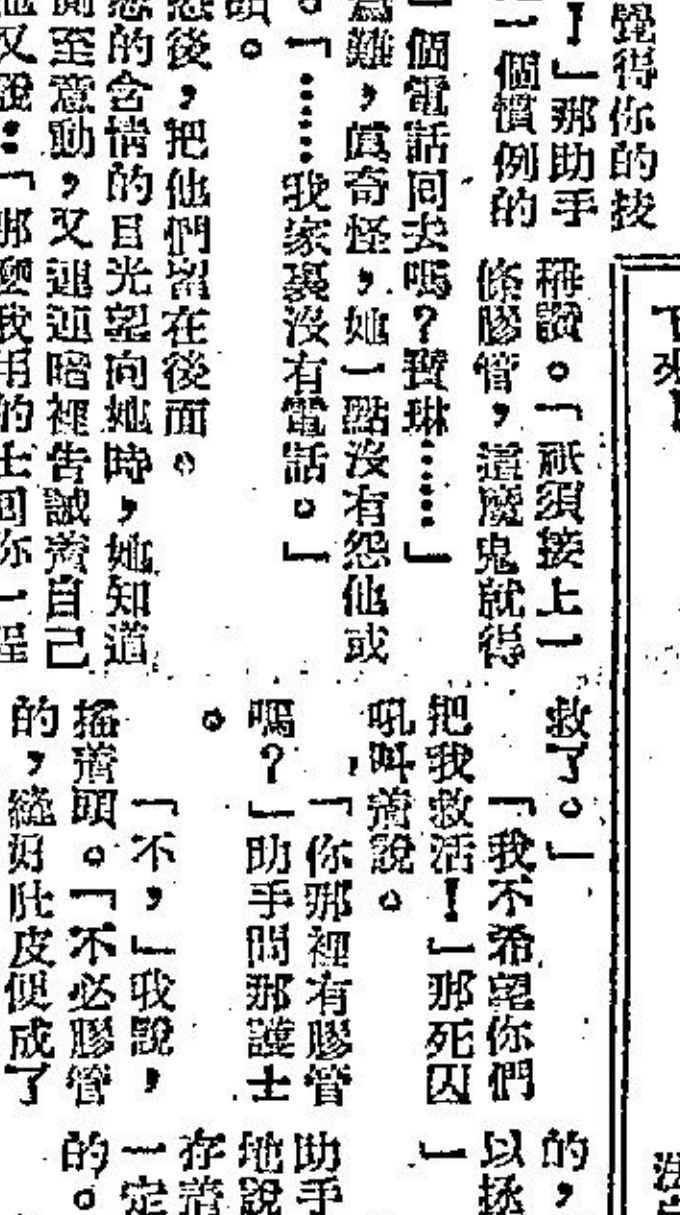 覺得你的技
！」那助手
一個慣例的
一個電話回去嗎？寶琳……」
為難，真奇怪，她一點沒有怨他或
。「……我家裏沒有電話。」
頭。
後，把他們留在後面。
的含情的目光望向她時，她知道
至意動，又連連暗裡告誡着自己
又說：「那麼我用的士回你一程
稱讚。「祇須接上一
條膠管，這魔鬼就得
救了。」
「我不希望你們
把我救活！」那死囚
吼叫着說。
「你那裡有膠管
嗎？」助手問那護士
。
「不，」我說，
搖着頭。「不必膠管
的，縫好肚皮便成了
的，
以拯
」
助手
地說
存着
一定
的。
下來！